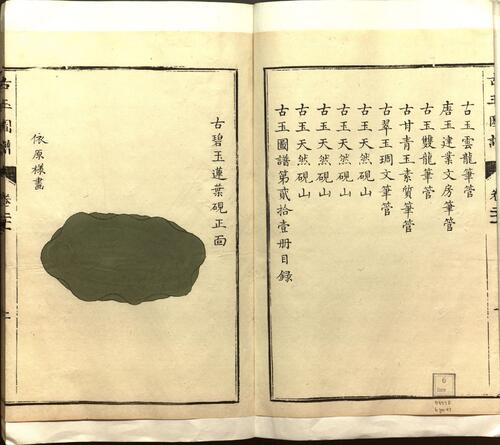 古玉雲龍筆管
唐玉建業文房筆管
古玉雙龍筆管
古甘青玉素質筆管
古翠玉琱文筆管
古玉天然硯山
古玉天然硯山
古玉天然硯山
古玉天然硯山
古玉圖譜第貳拾壹册目錄
古碧玉蓮葉硯正面
依原樣畫
古玉圖譜
6